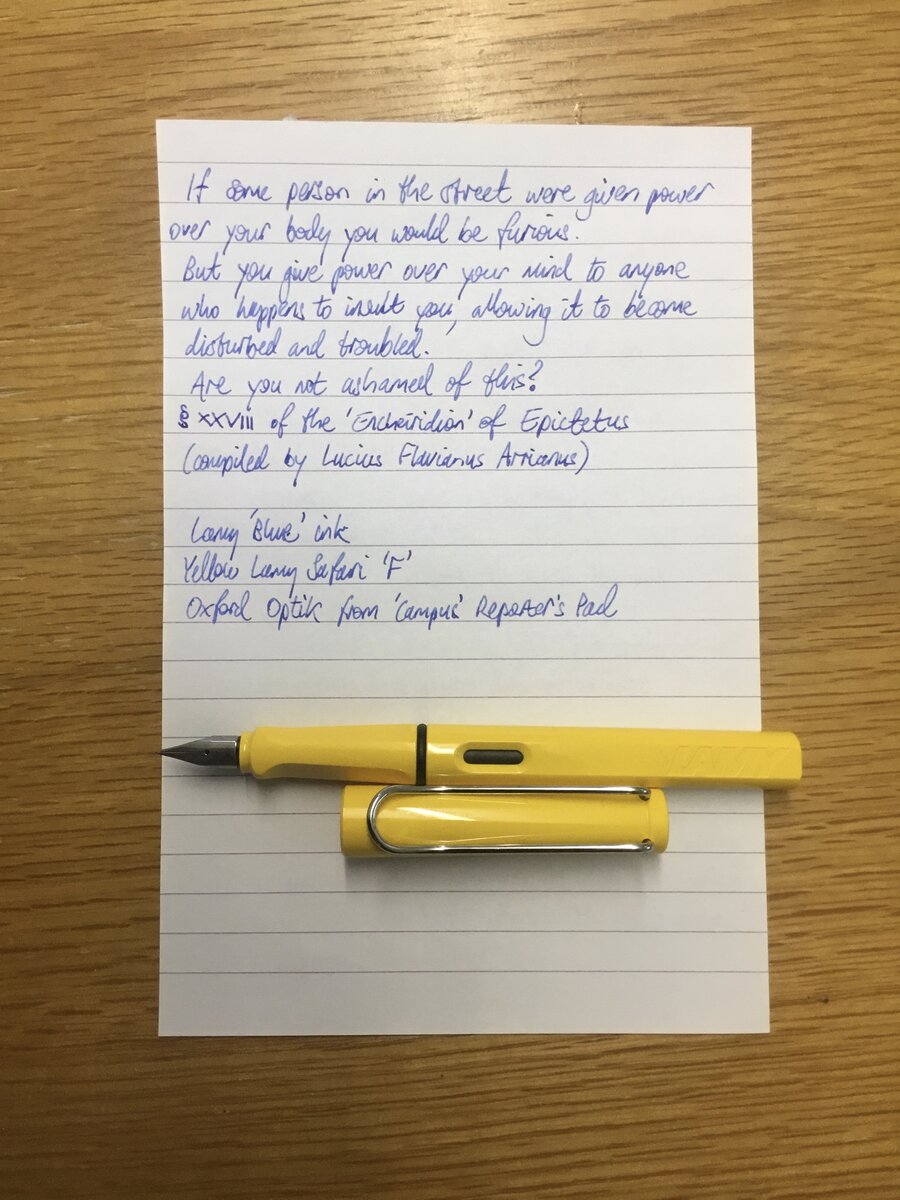 If some person in the street were given power
over your body you would be furious.
But you give power over your mind to anyone
who happens to insult you, allowing it to become
disturbed and troubled.
Are you not ashamed of this?
§ XXVIII of the 'Encheiridion' of Epictetus
(compiled by Lucius Flavianus Arrianus)
Lamy 'Blue' ink
Yellow Lamy Safari 'F'
Oxford Optik from 'Campus' Reporter's Pad
LAMY